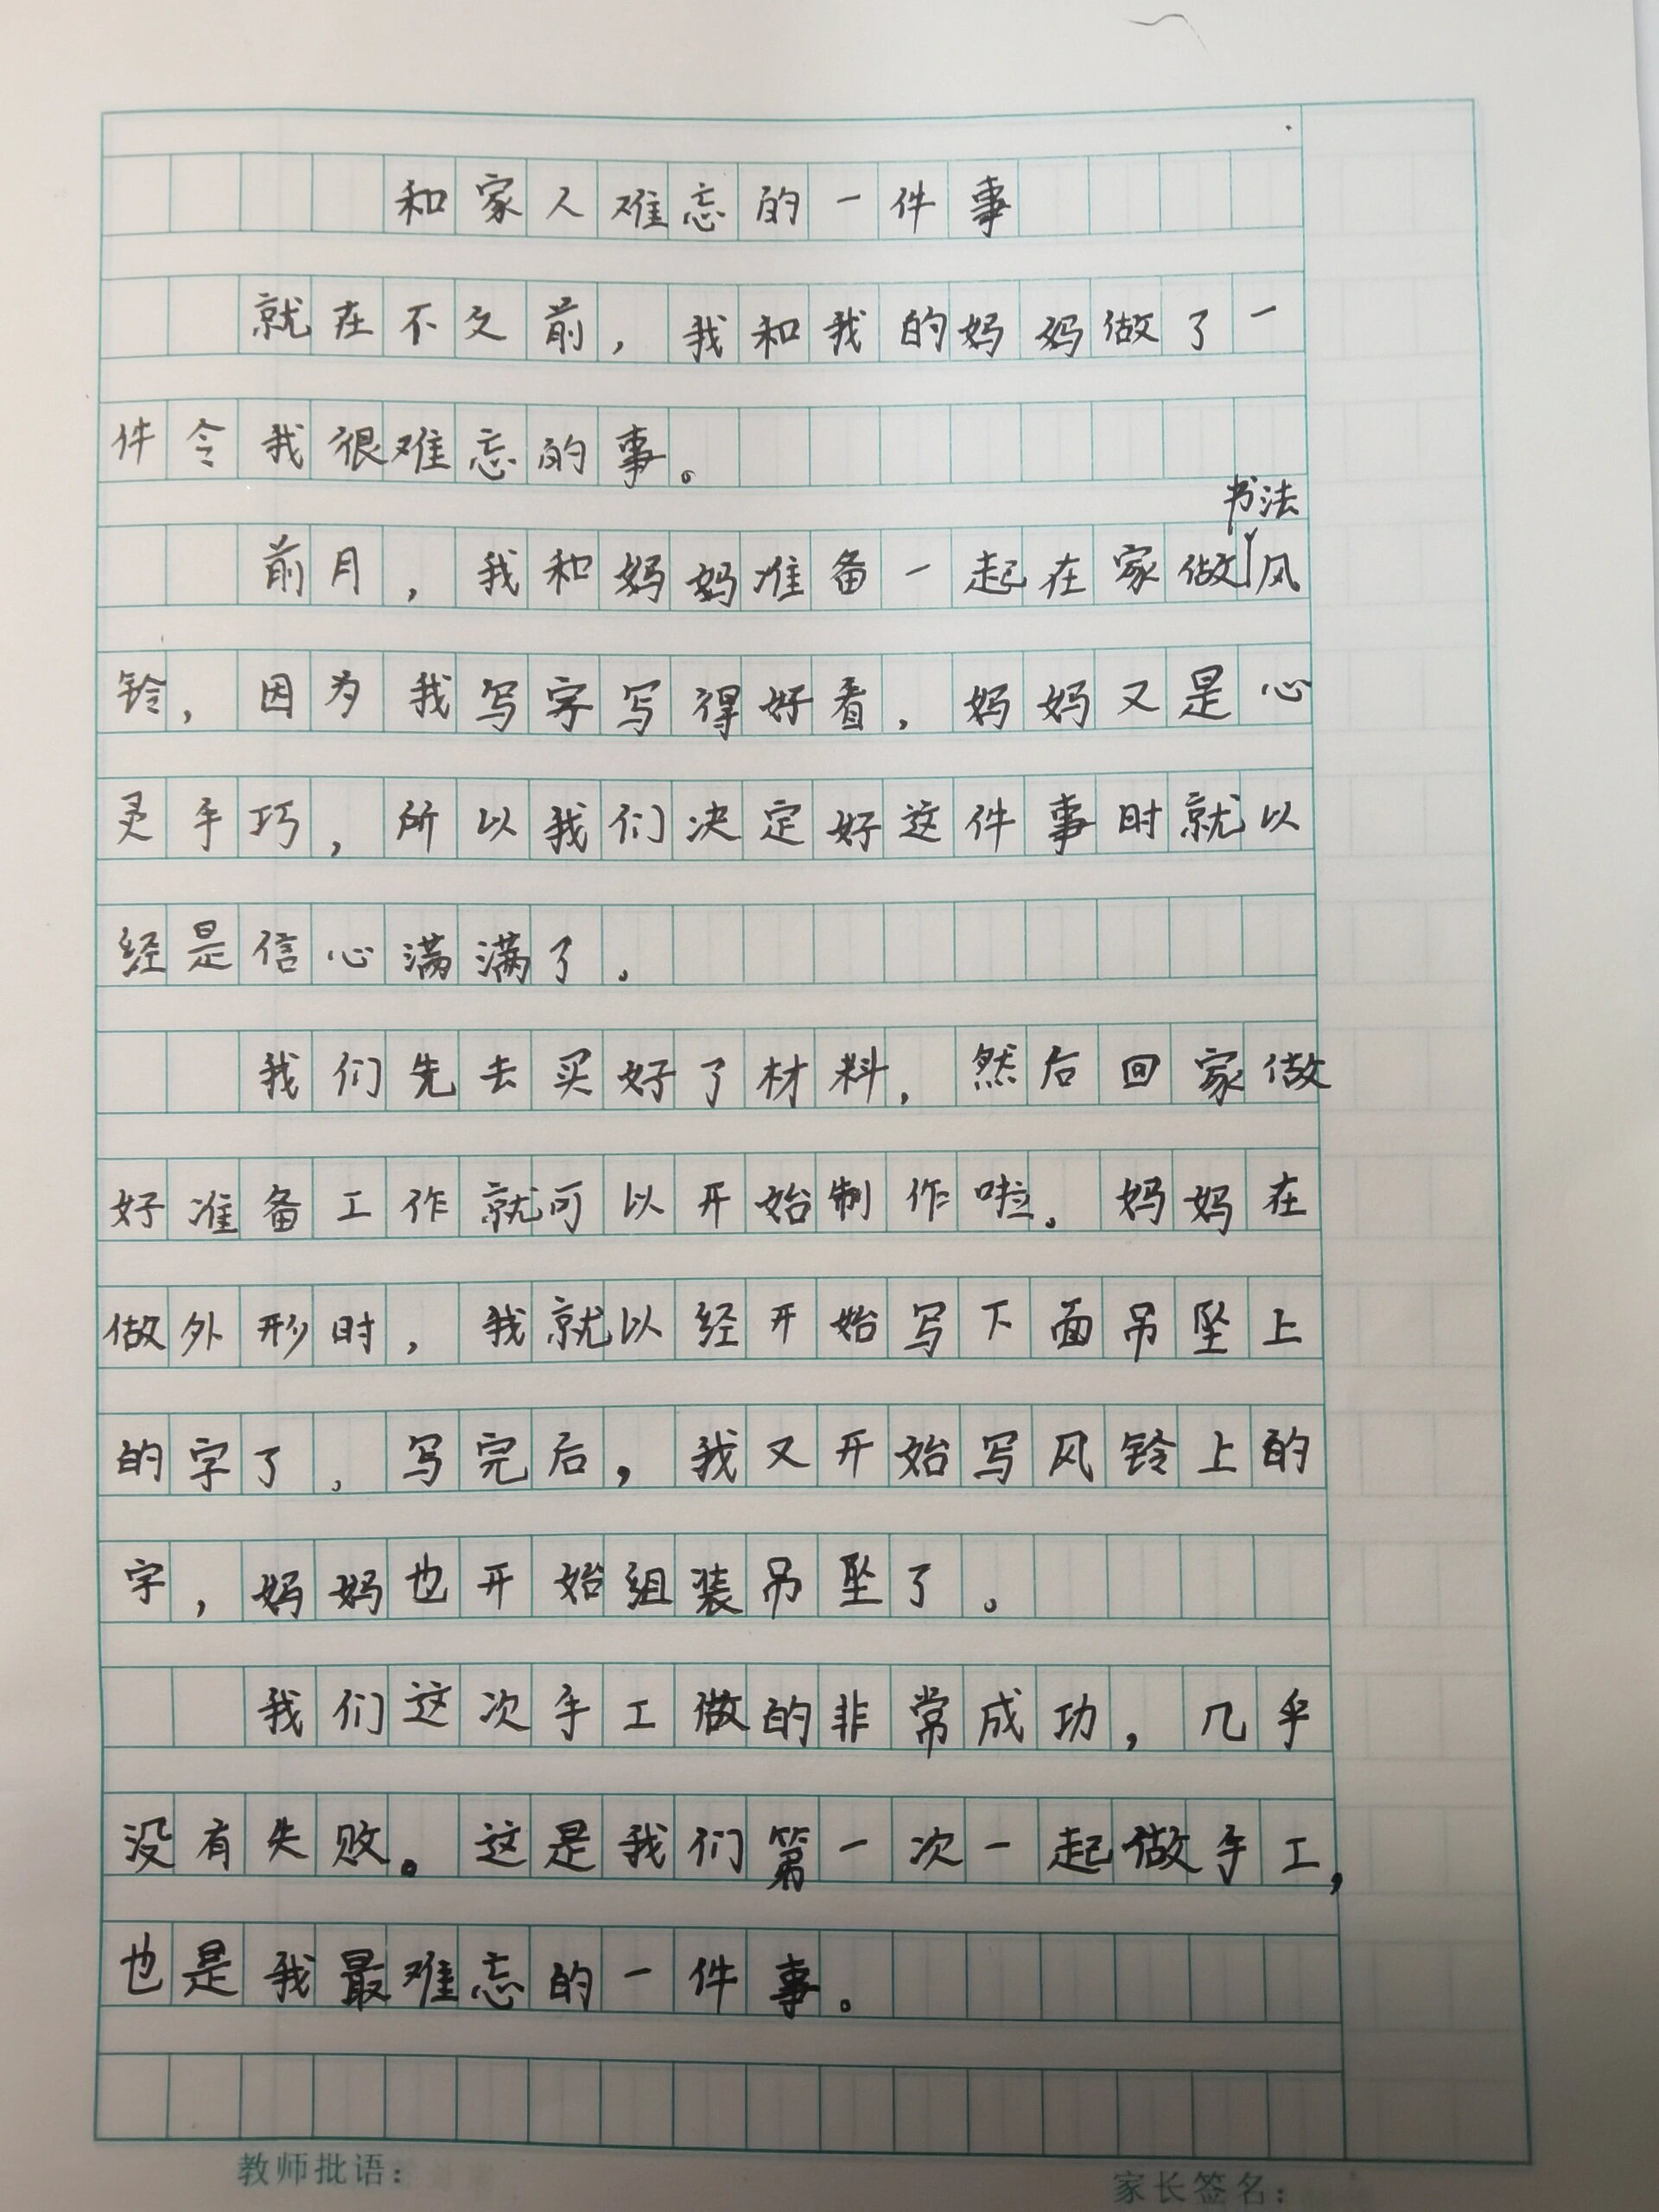 和家人难忘的一件事
就在不久前，我和我的妈妈做了一
件令我很难忘的事。
书法
前月，我和妈妈准备一起在家做风
铃，因为我写字写得好看，妈妈又是心
灵手巧，所以我们决定好这件事时就以
经是信心满满了。
我们先去买好了材料，然后回家做
好准备工作就可以开始制作啦。妈妈在
做外形时，我就以经开始写下面吊坠上
的字了，写完后，我又开始写风铃上的
字，妈妈也开始组装吊坠了。
我们这次手工做的非常成功，几乎
没有失败。这是我们第一次一起做手工，
也是我最难忘的一件事。
教师批语：
家长签名：